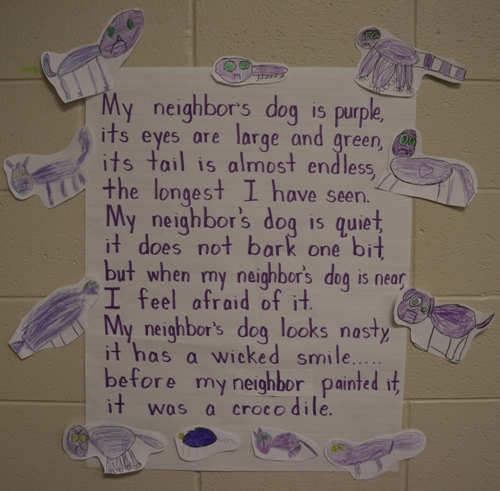 My neighbor's dog is purple,
its eyes are large and green,
its tail is almost endless,
the longest I have seen.
My neighbor's dog is quiet,
it does not bark one bit,
but when my neighbor's dog is near,
I feel afraid of it.
My neighbor's dog looks nasty,
it has a wicked smile.....
before my neighbor painted it,
it was a crocodile.